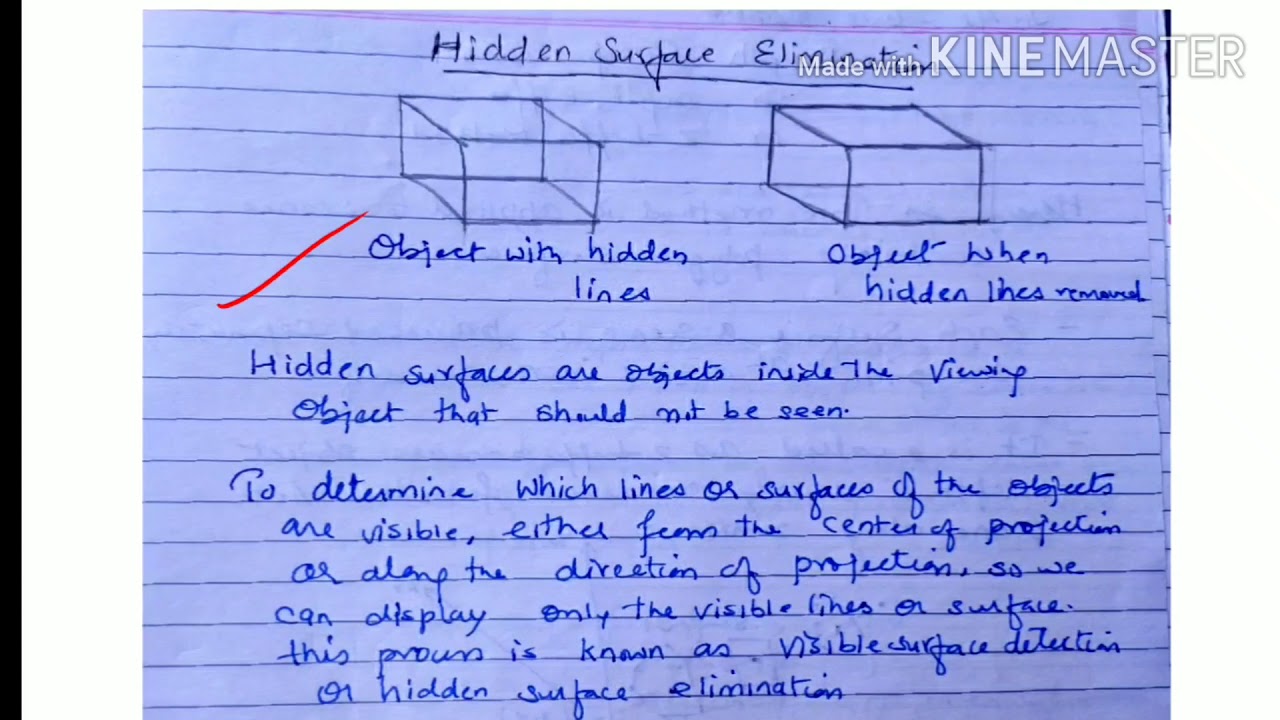 Hidden Surface Elimination
Made with KINEMASTER
Object with hidden
lines
Object when
hidden lines removed
Hidden surfaces are objects inside the viewing
object that should not be seen.
To determine which lines or surfaces of the objects
are visible, either from the center of projection
or along the direction of projection, so we
can display only the visible lines or surface.
this process is known as visible surface detection
or hidden surface elimination